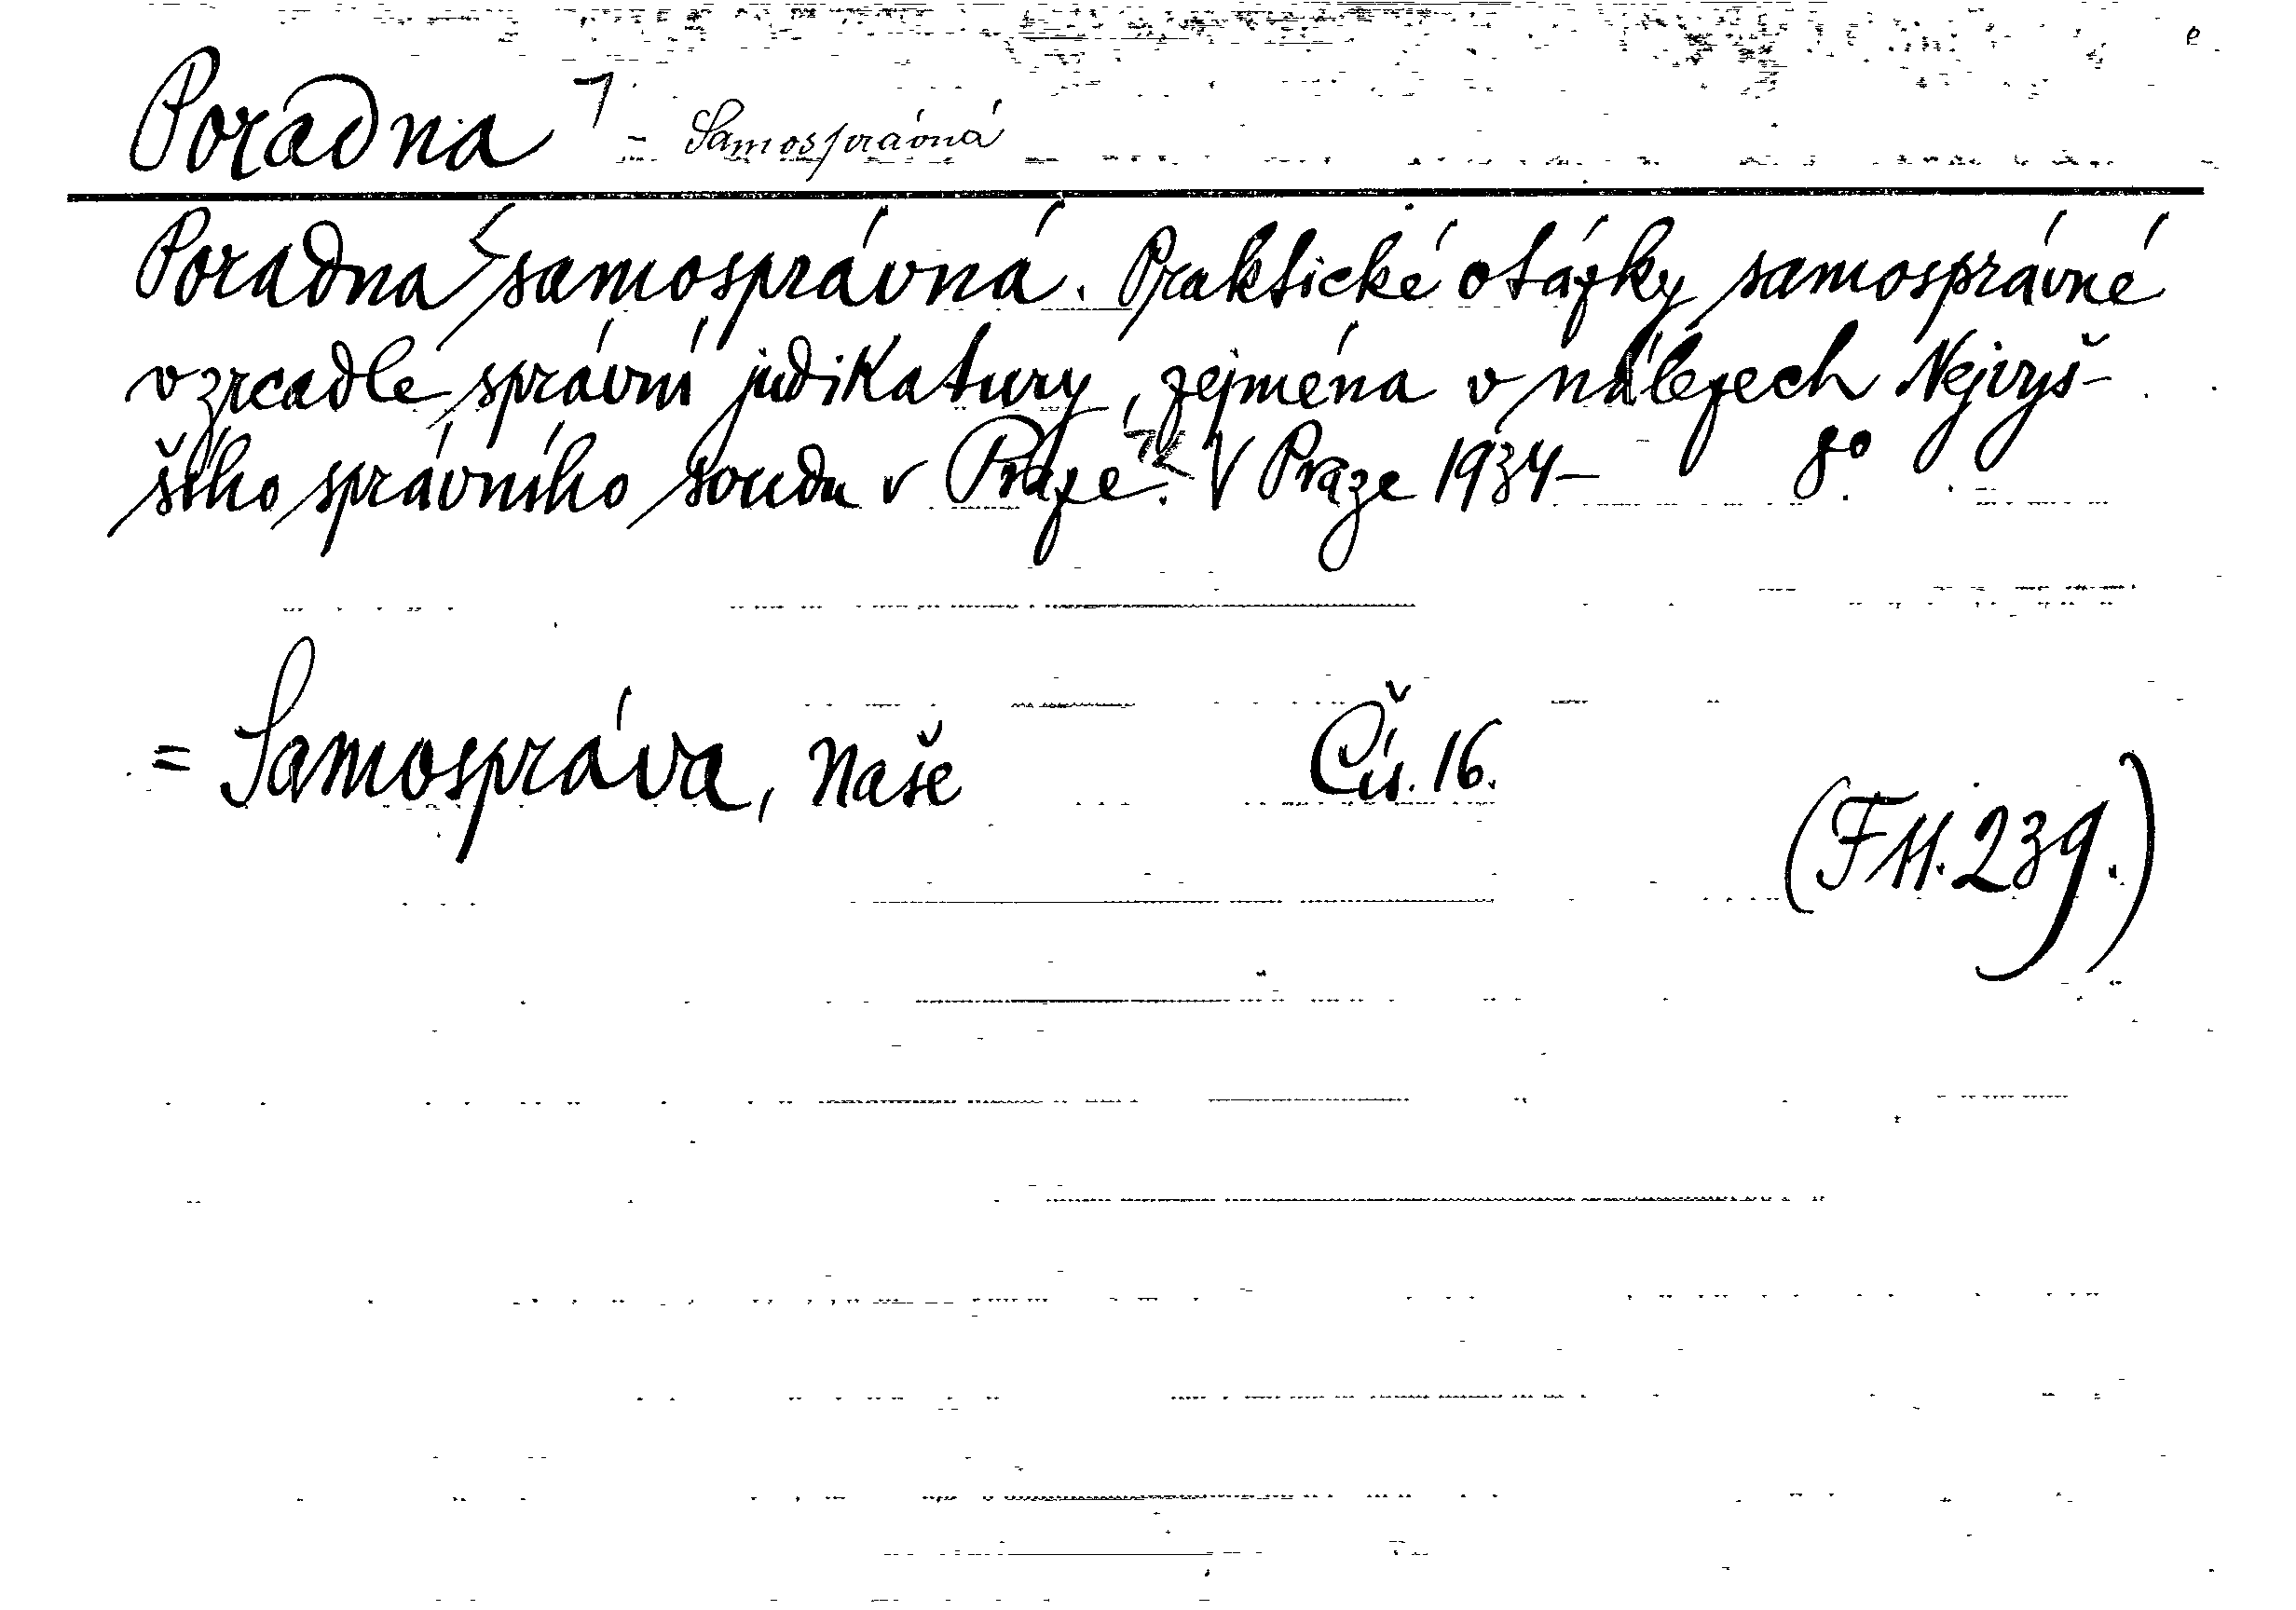 Poradna - Samosprávná
Poradna samosprávná. Praktické otázky samosprávné
v zrcadle správní judikatury, zejména v nálezech Nejvyš-
šího správního soudu v Praze. V Praze 1934- 8°.
= Samospráva, Naše Čís. 16.
(FH. 239.)